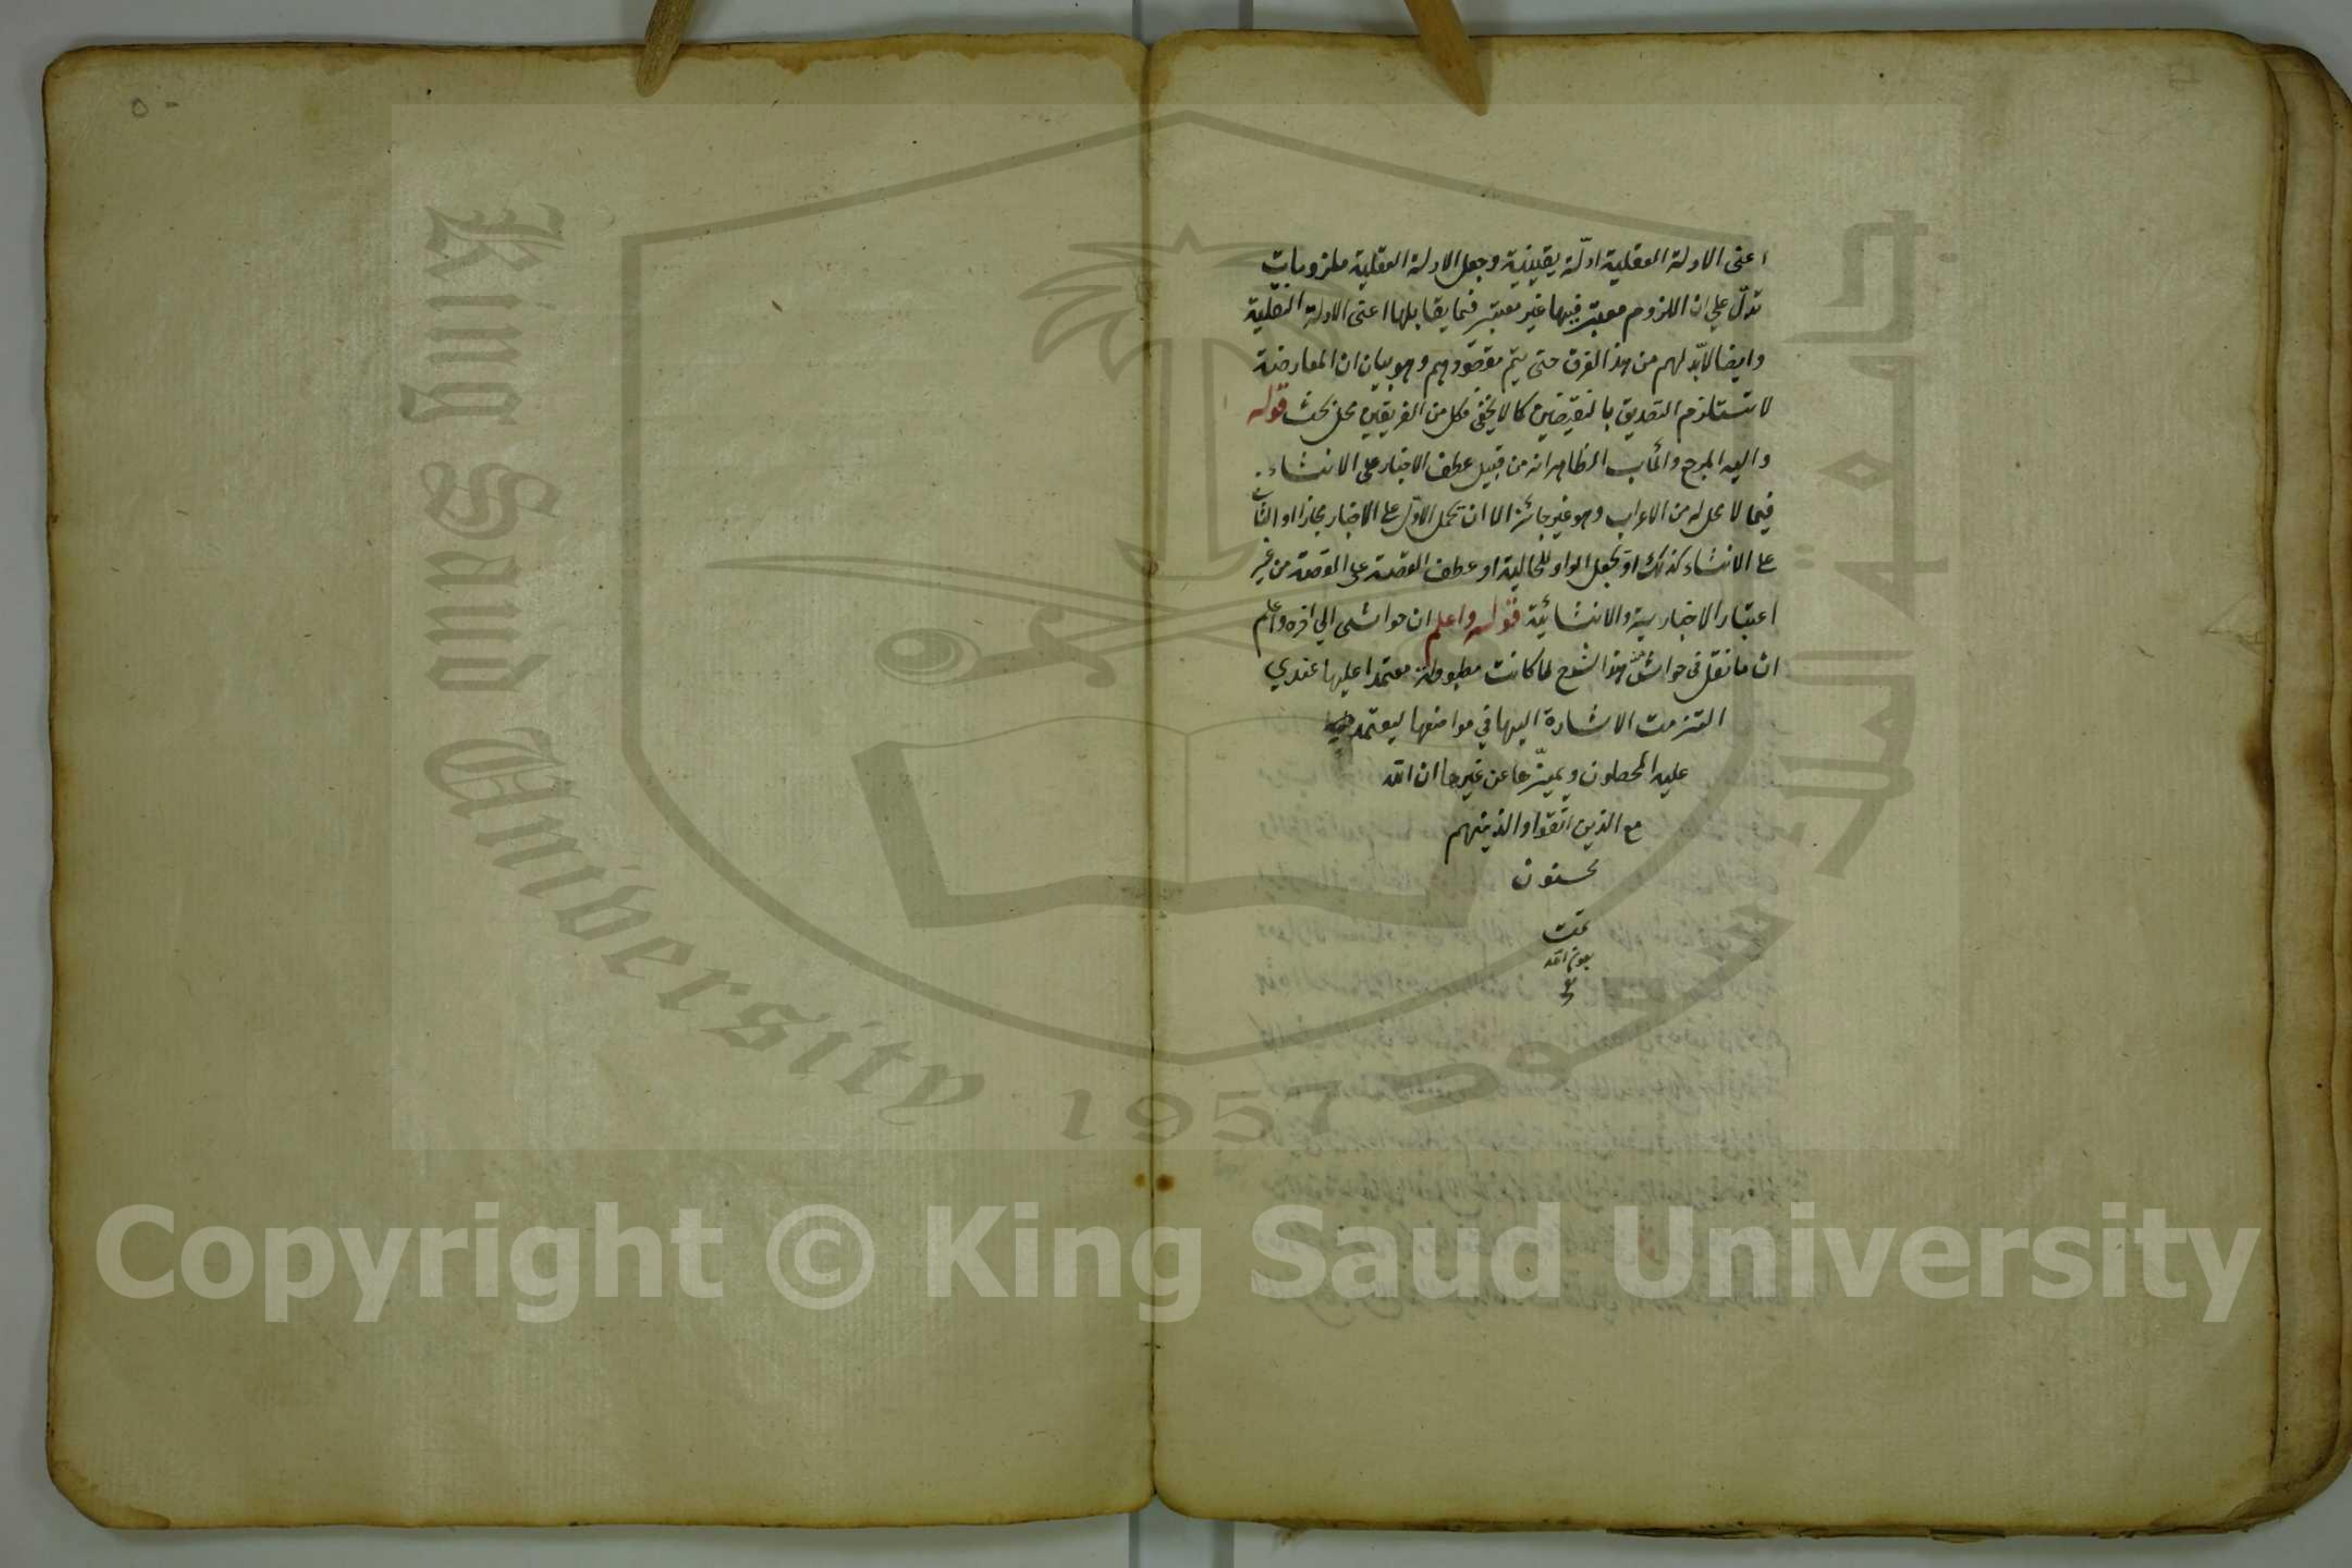 اعنى الادلة العقلية ادلّة يقينية وجعل الادلة العقلية ملزوميات
تدلّ على ان اللزوم معتبر فيها غير معتبر فيما يقابلها اعنى الادلة النقلية
وايضا لابّد لهم من هذا الفرق حتى يتم مقصودهم وهو بيان ان المعارضة
لا تستلزم التصديق بالنقيضين كما لا يخفى فكل من الفريقين محل بحث قوله
واليه المرجع والمأب الظاهر انه من قبيل عطف الاخبار على الانشاء
فيما لا محل له من الاعراب وهو غير جائز الا ان تحمل الاول على الاخبار مجازا او الثانى
على الانشاء كذلك او تجعل الواو للحالية او عطف القصة على القصة من غير
اعتبار الاخبارية والانشائية قوله واعلم ان حواشى الى اخره واعلم
ان ما نقل فى حواشى هذا الشرح لما كانت مضبوطة معتمدا عليها عندي
التزمت الاشارة اليها في مواضعها ليعتمد
عليه المحصلون ويميّزها عن غيرها ان الله
مع الذين اتقوا والذين هم
محسنون
تمت
بعون الله
King Saud University
1957
جامعة الملك سعود
Copyright © King Saud University